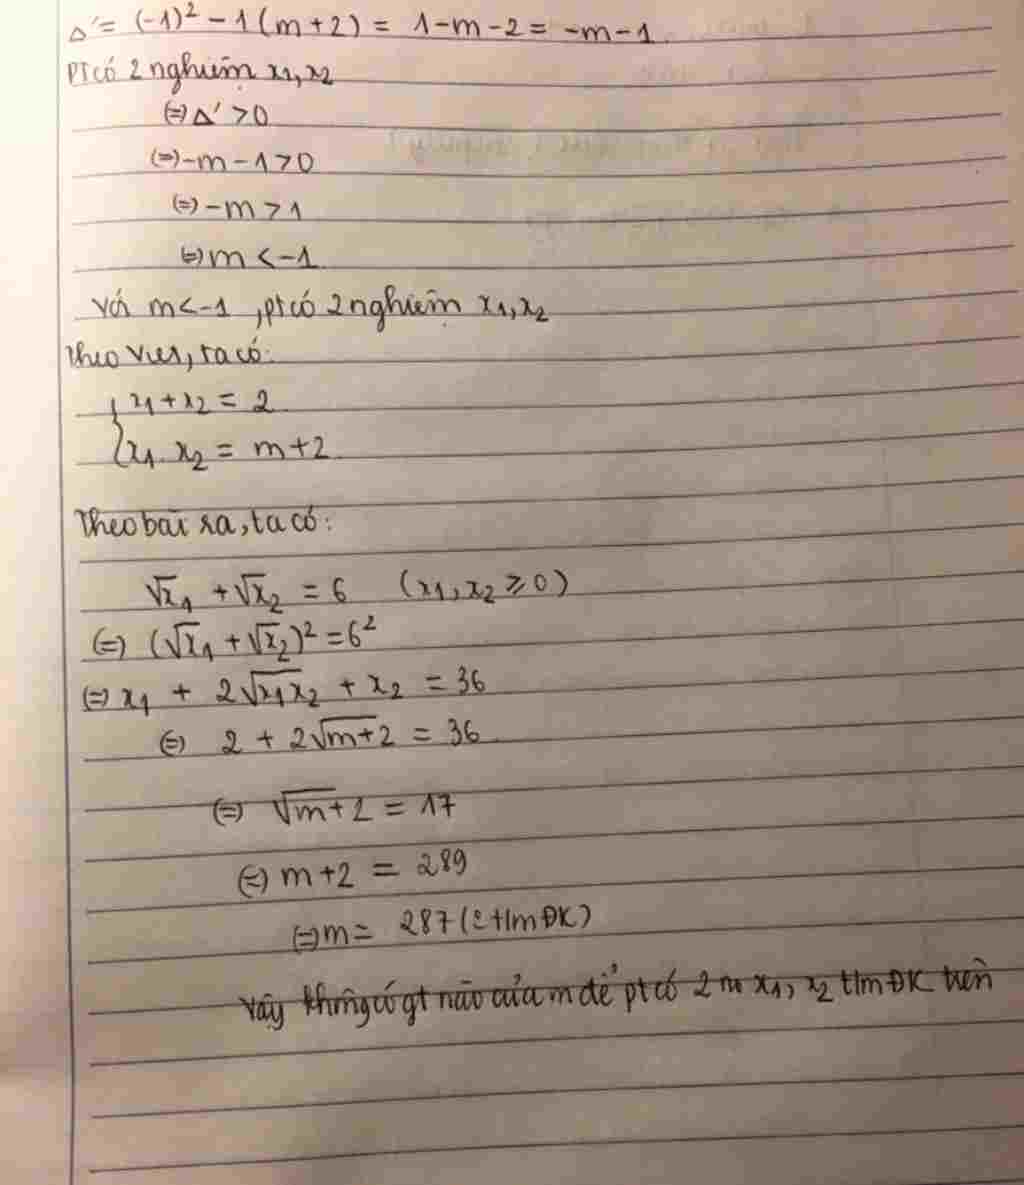 Δ' = (-1)² - 1(m+2) = 1-m-2 = -m-1
PT có 2 nghiệm x₁, x₂
(=) Δ' > 0
(=) -m - 1 > 0
(=) -m > 1
(=) m < -1
Với m < -1, pt có 2 nghiệm x₁, x₂
Theo Viet, ta có:
{ x₁ + x₂ = 2
x₁. x₂ = m+2
Theo bài ra, ta có:
√x₁ + √x₂ = 6 (x₁, x₂ ⩾ 0)
(=) (√x₁ + √x₂)² = 6²
(=) x₁ + 2√x₁x₂ + x₂ = 36
(=) 2 + 2√m+2 = 36
(=) √m+2 = 17
(=) m+2 = 289
(=) m = 287 (ktlm ĐK)
Vậy không có gt nào của m để pt có 2 no x₁, x₂ t/m ĐK trên